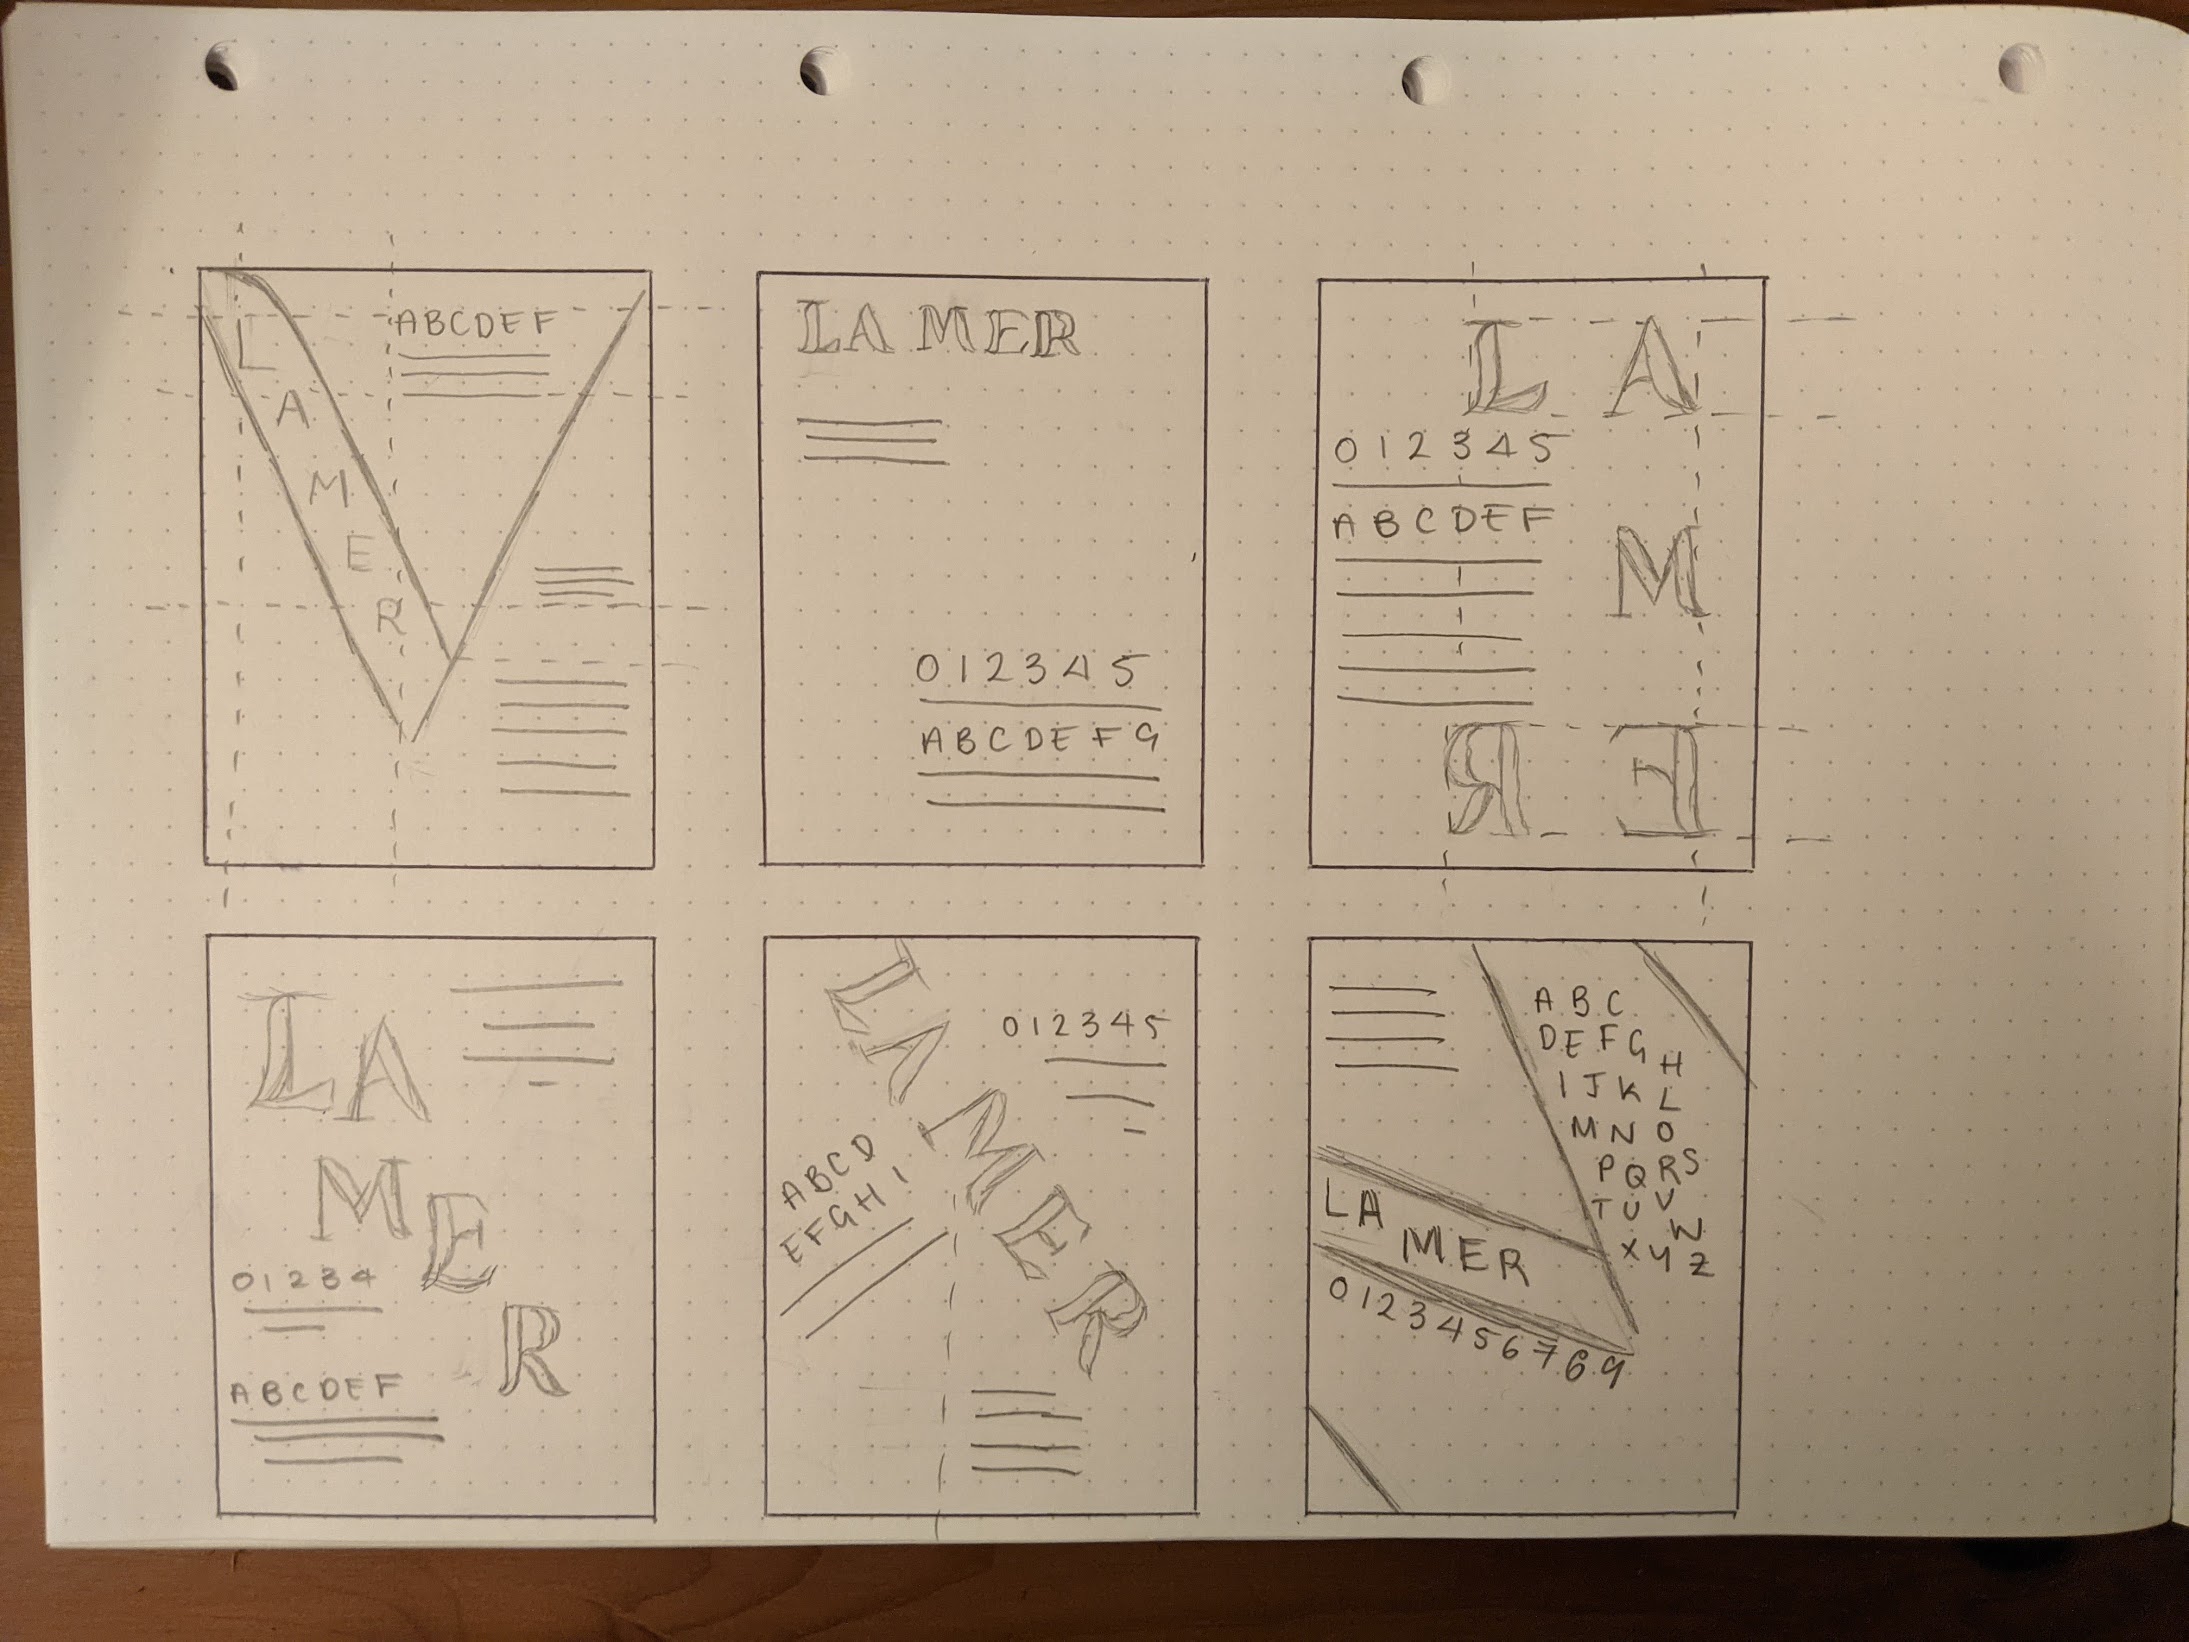 L
A
M
E
R
ABCDEF
LA MER
0 1 2 3 4 5
A B C D E F G
L A
0 1 2 3 4 5
A B C D E F
M
E
R
LA
M
E
R
0 1 2 3 4
A B C D E F
LA MER
0 1 2 3 4 5
A B C D
E F G H I
A B C
D E F G H
I J K L
M N O
P Q R S
T U V
W
X Y Z
LA
MER
0 1 2 3 4 5 6 7 8 9